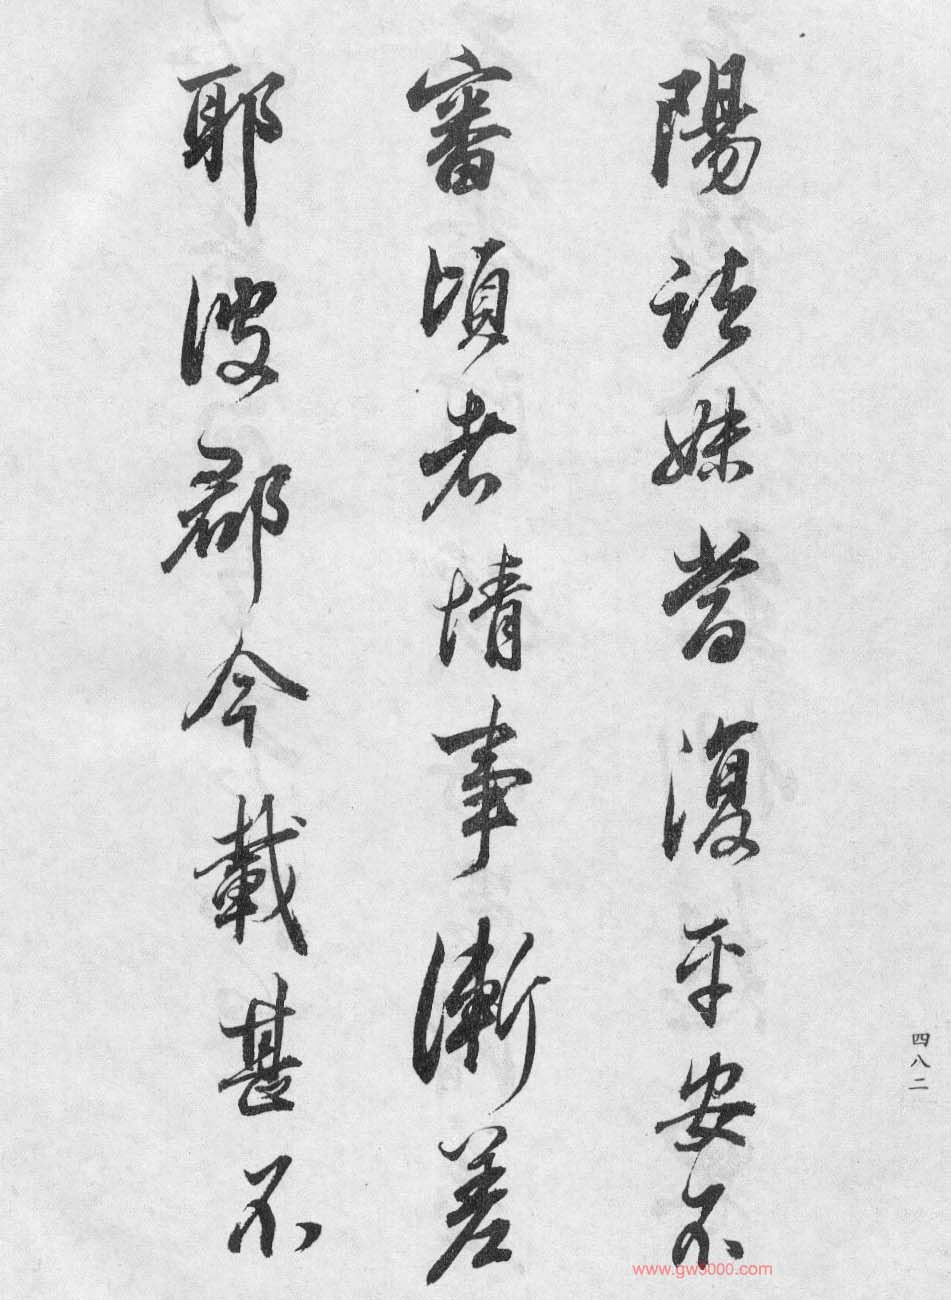 陽諸妹復平安不
審頃者情事漸差
耶彼郡今載甚不
四八二
www.gw5000.com